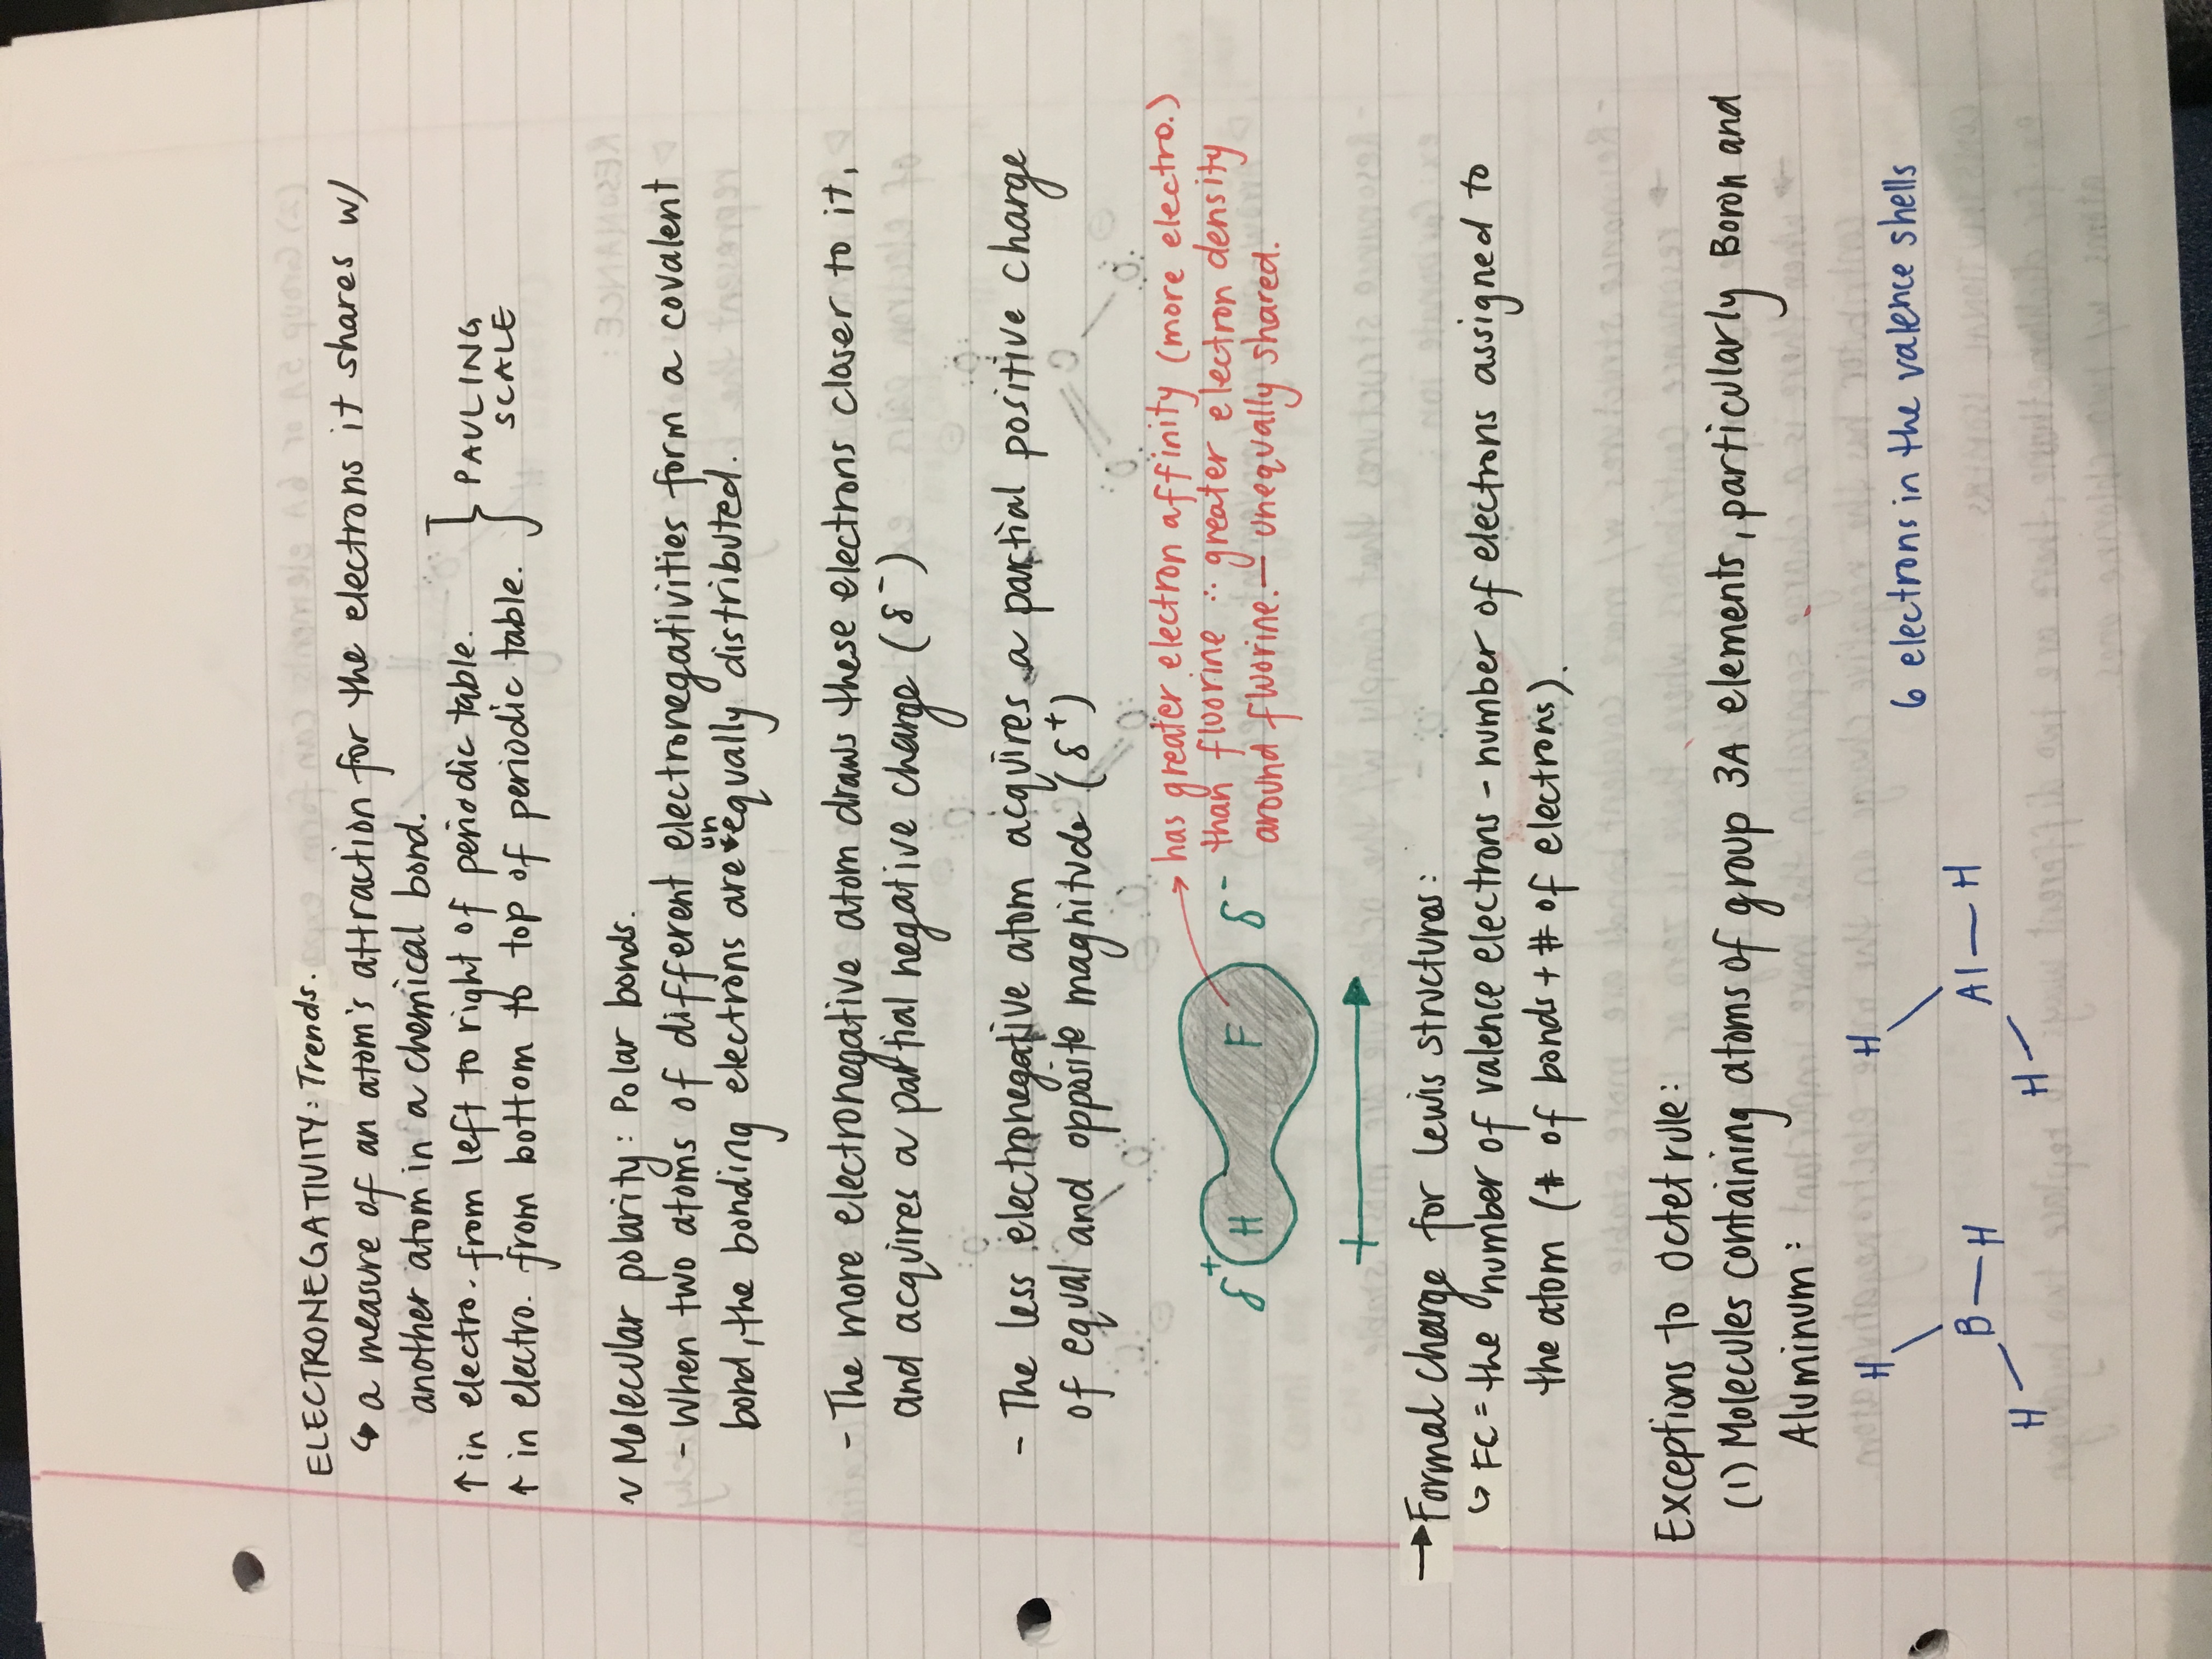 ELECTRONEGATIVITY: Trends.
↳ a measure of an atom's attraction for the electrons it shares w/
another atom in a chemical bond.
↑ in electro. from left to right of periodic table.
↑ in electro. from bottom to top of periodic table.
PAULING
SCALE
~ Molecular polarity: Polar bonds.
- When two atoms of different electronegativities form a covalent
bond, the bonding electrons are unequally distributed.
- The more electronegative atom draws these electrons closer to it,
and acquires a partial negative charge (δ⁻)
- The less electronegative atom acquires a partial positive charge
of equal and opposite magnitude (δ⁺)
→ has greater electron affinity (more electro.)
than fluorine ∴ greater electron density
around fluorine. — unequally shared.
δ⁺ H F δ⁻
→ Formal charge for Lewis structures:
↳ FC = the number of valence electrons - number of electrons assigned to
the atom (# of bonds + # of electrons).
Exceptions to octet rule:
(1) Molecules containing atoms of group 3A elements, particularly Boron and
Aluminum:
6 electrons in the valence shells
H H
B — H Al — H
H H